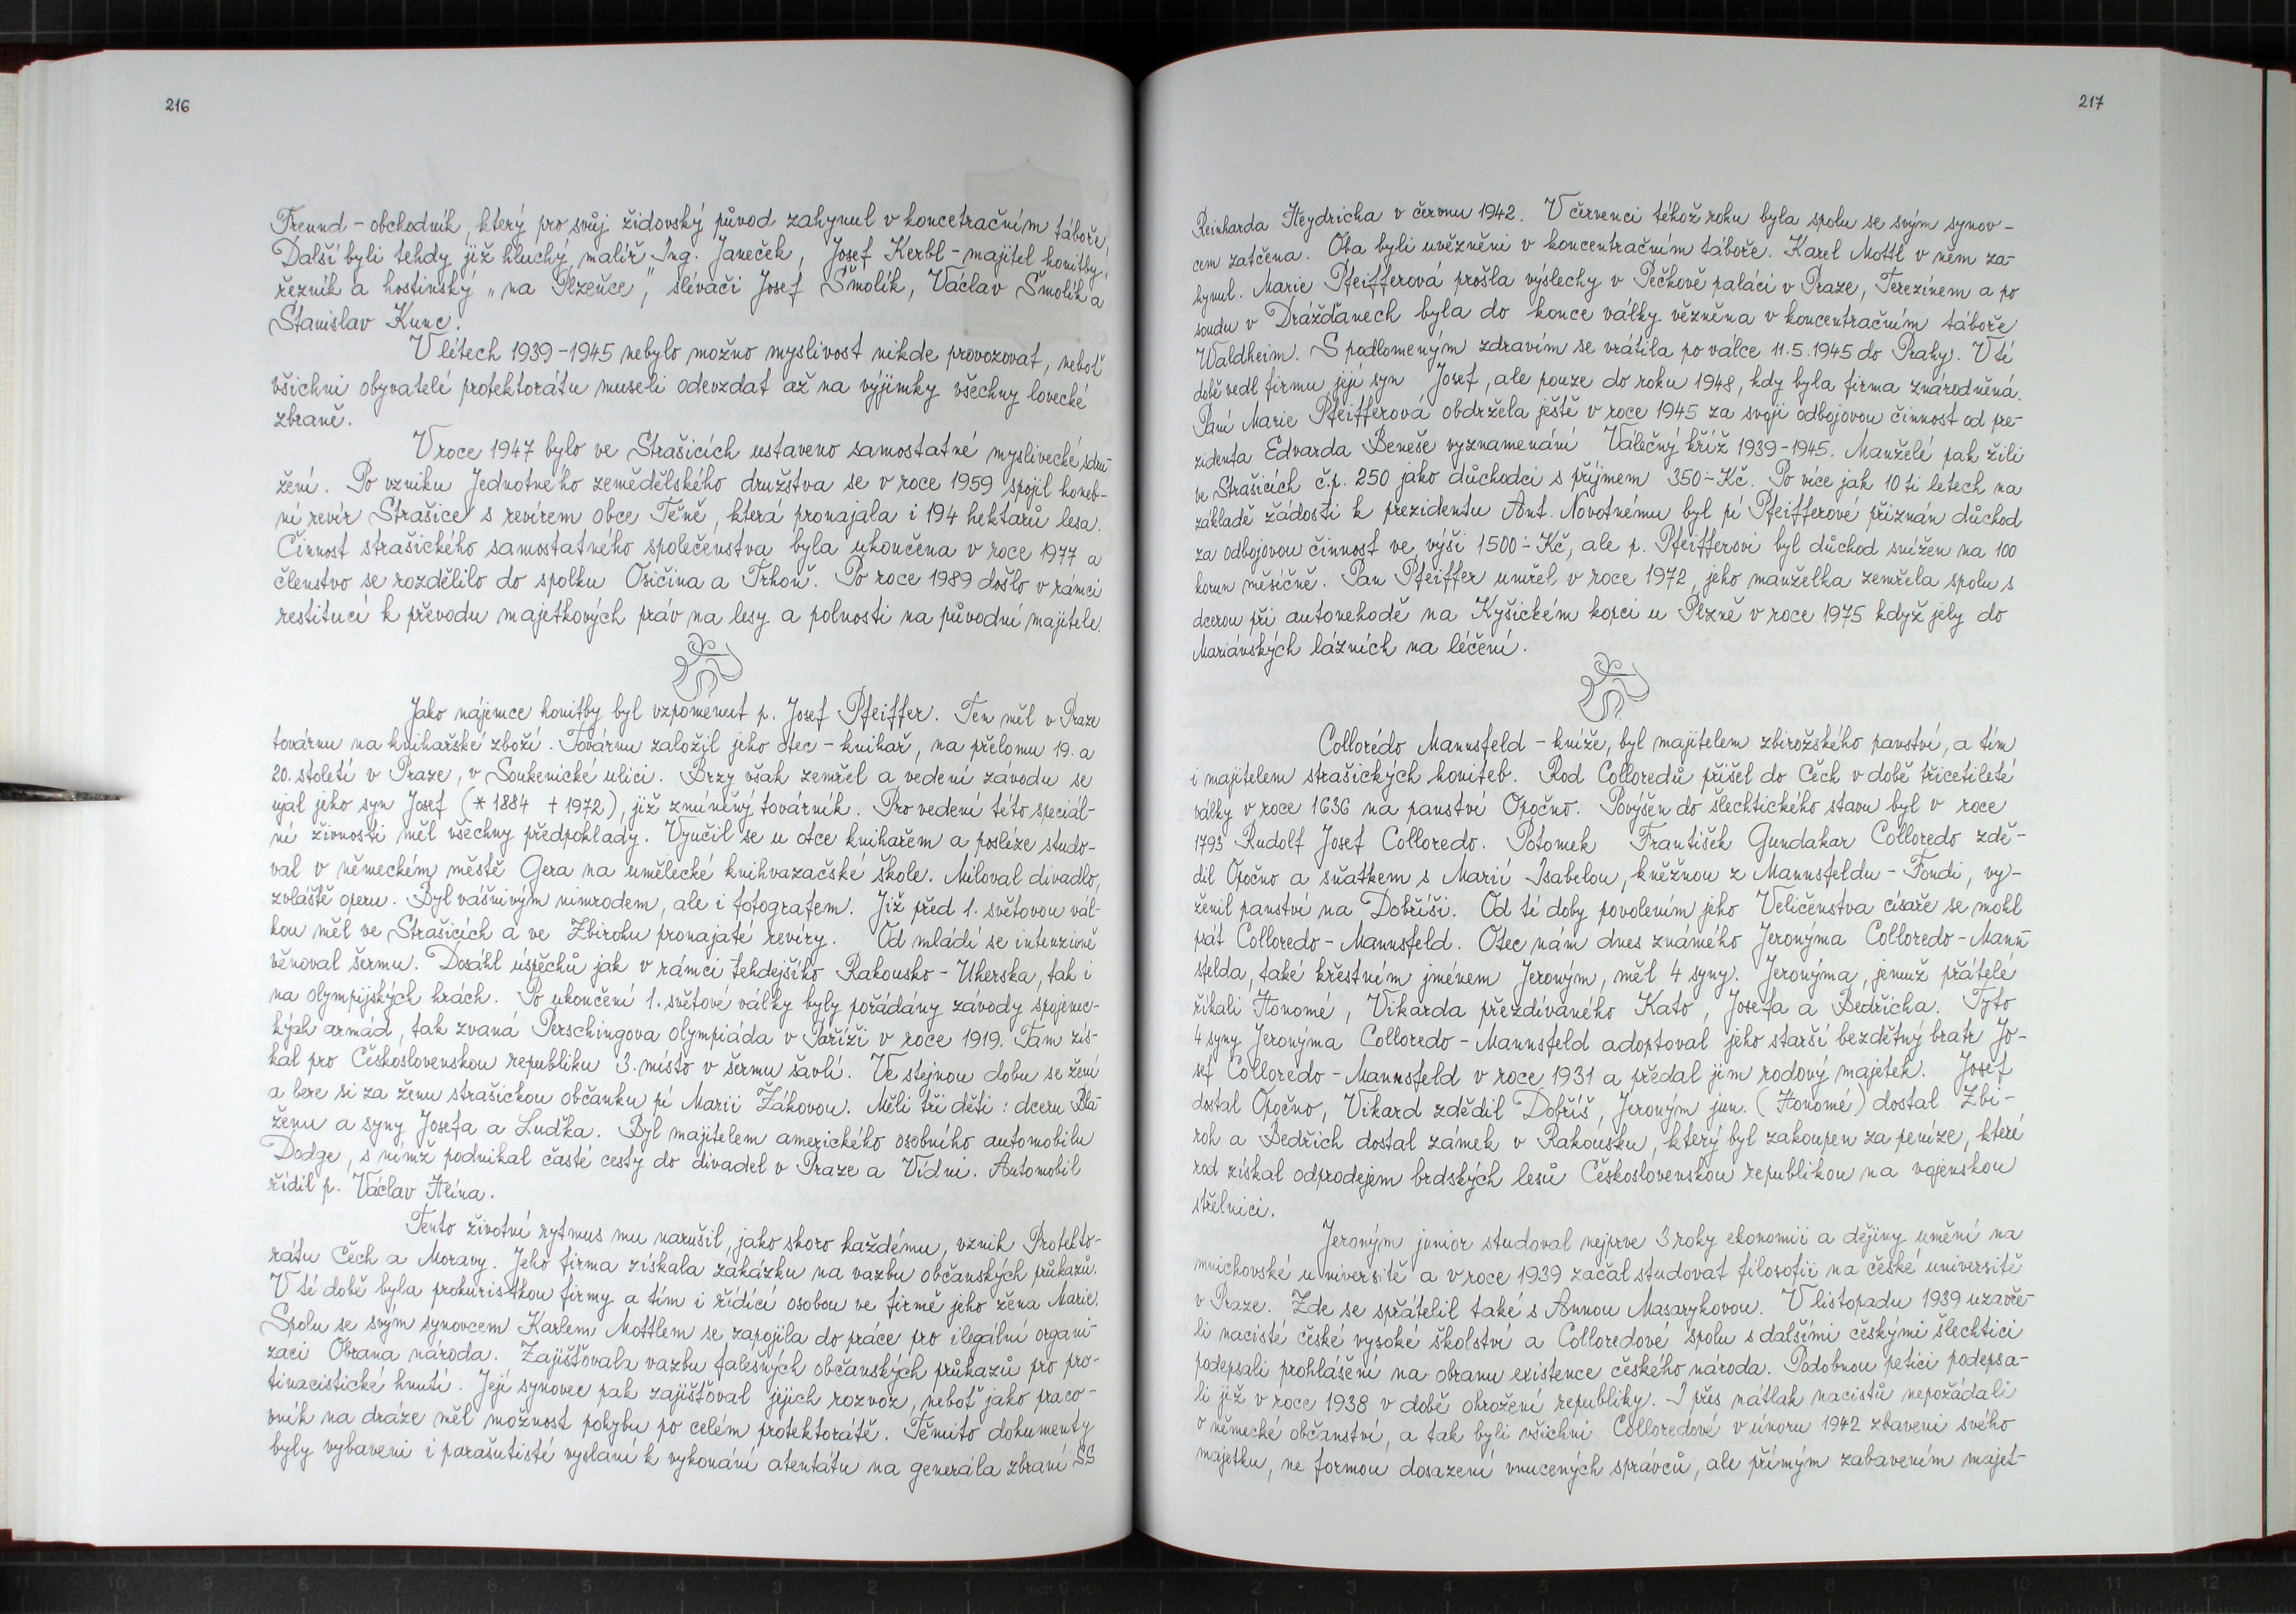 216
Freund – obchodník, který pro svůj židovský původ zahynul v koncetračním táboře,
Další byli tehdy již hluchý malíř Ing. Janeček, Josef Kerbl – majitel honitby,
řezník a hostinský „na Plzeňce", slévači Josef Šmolík, Václav Šmolík a
Stanislav Kunc.
V létech 1939-1945 nebylo možno myslivost nikde provozovat, neboť
všichni obyvatelé protektorátu museli odevzdat až na výjimky všechny lovecké
zbraně.
V roce 1947 bylo ve Strašicích ustaveno samostatné myslivecké sdru-
žení. Po vzniku Jednotného zemědělského družstva se v roce 1959 spojil honeb-
ní revír Strašice s revírem obce Těně, která pronajala i 194 hektarů lesa.
Činnost strašického samostatného společenstva byla ukončena v roce 1977 a
členstvo se rozdělilo do spolku Osičina a Trhoň. Po roce 1989 došlo v rámci
restitucí k převodu majetkových práv na lesy a polnosti na původní majitele.
Jako nájemce honitby byl vzpomenut p. Josef Pfeiffer. Ten měl v Praze
továrnu na knihařské zboží. Továrnu založil jeho otec – knihař, na přelomu 19. a
20. století v Praze, v Soukenické ulici. Brzy však zemřel a vedení závodu se
ujal jeho syn Josef (*1884 †1972), již zmíněný továrník. Pro vedení této speciál-
ní živnosti měl všechny předpoklady. Vyučil se u otce knihařem a posléze studo-
val v německém městě Gera na umělecké knihvazačské škole. Miloval divadlo,
zvláště operu. Byl vášnivým nimrodem, ale i fotografem. Již před 1. světovou vál-
kou měl ve Strašicích a ve Zbirohu pronajaté revíry. Od mládí se intenzivně
věnoval šermu. Dosáhl úspěchů jak v rámci tehdejšího Rakousko-Uherska, tak i
na olympijských hrách. Po ukončení 1. světové války byly pořádány závody spojenec-
kých armád, tak zvaná Perschingova olympiáda v Paříži v roce 1919. Tam zís-
kal pro Československou republiku 3. místo v šermu šavlí. Ve stejnou dobu se žení
a bere si za ženu strašickou občanku pí Marii Žákovou. Měli tři děti: dceru Bla-
ženu a syny Josefa a Luďka. Byl majitelem amerického osobního automobilu
Dodge, s nímž podnikal časté cesty do divadel v Praze a Vídni. Automobil
řídil p. Václav Hlína.
Tento životní rytmus mu narušil, jako skoro každému, vznik Protekto-
rátu Čech a Moravy. Jeho firma získala zakázku na vazbu občanských průkazů.
V té době byla prokuristkou firmy a tím i řídící osobou ve firmě jeho žena Marie.
Spolu se svým synovcem Karlem Mottlem se zapojila do práce pro ilegální organi-
zaci Obrana národa. Zajišťovala vazbu falešných občanských průkazů pro pro-
tinacistické hnutí. Její synovec pak zajišťoval jejich rozvoz, neboť jako praco-
vník na dráze měl možnost pohybu po celém protektorátě. Těmito dokumenty
byly vybaveni i parašutisté vyslaní k vykonání atentátu na generála zbraní SS
217
Reinharda Heydricha v červnu 1942. V červenci téhož roku byla spolu se svým synov-
cem zatčena. Oba byli uvězněni v koncentračním táboře. Karel Mottl v něm za-
hynul. Marie Pfeifferová prošla výslechy v Pečkově paláci v Praze, Terezínem a po
soudu v Drážďanech byla do konce války vězněna v koncentračním táboře
Waldheim. S podlomeným zdravím se vrátila po válce 11.5.1945 do Prahy. V té
době vedl firmu její syn Josef, ale pouze do roku 1948, kdy byla firma znárodněná.
Paní Marie Pfeifferová obdržela ještě v roce 1945 za svoji odbojovou činnost od pre-
zidenta Edvarda Beneše vyznamenání Válečný kříž 1939-1945. Manželé pak žili
ve Strašicích č.p. 250 jako důchodci s příjmem 350,- Kč. Po více jak 10 ti letech na
základě žádosti k prezidentu Ant. Novotnému byl pí Pfeifferové přiznán důchod
za odbojovou činnost ve výši 1500,- Kč, ale p. Pfeifferovi byl důchod snížen na 100
korun měsíčně. Pan Pfeiffer umřel v roce 1972, jeho manželka zemřela spolu s
dcerou při autonehodě na Kyšickém kopci u Plzně v roce 1975 když jely do
Mariánských lázních na léčení.
Collorédo Mannsfeld – kníže, byl majitelem zbirožského panství, a tím
i majitelem strašických honiteb. Rod Colloredů přišel do Čech v době třicetileté
války v roce 1636 na panství Opočno. Povýšen do šlechtického stavu byl v roce
1793 Rudolf Josef Colloredo. Potomek František Gundakar Colloredo zdě-
dil Opočno a sňatkem s Marií Isabelou, kněžnou z Mannsfeldu – Fondi, vy-
ženil panství na Dobříši. Od té doby povolením jeho Veličenstva císaře se mohl
psát Colloredo – Mannsfeld. Otec nám dnes známého Jeronýma Colloredo – Mann-
sfelda, také křestním jménem Jeroným, měl 4 syny. Jeronýma, jemuž přátelé
říkali Honomé, Vikarda přezdívaného Kato, Josefa a Bedřicha. Tyto
4 syny Jeronýma Colloredo – Mannsfeld adoptoval jeho starší bezdětný bratr Jo-
sef Colloredo – Mannsfeld v roce 1931 a předal jim rodový majetek. Josef
dostal Opočno, Vikard zdědil Dobříš, Jeroným jun. (Honomé) dostal Zbi-
roh a Bedřich dostal zámek v Rakousku, který byl zakoupen za peníze, které
rod získal odprodejem brdských lesů Československou republikou na vojenskou
střelnici.
Jeroným junior studoval nejprve 3 roky ekonomii a dějiny umění na
mnichovské universitě a v roce 1939 začal studovat filosofii na české universitě
v Praze. Zde se spřátelil také s Annou Masarykovou. V listopadu 1939 uzavře-
li nacisté české vysoké školství a Colloredové spolu s dalšími českými šlechtici
podepsali prohlášení na obranu existence českého národa. Podobnou petici podepsa-
li již v roce 1938 v době ohrožení republiky. I přes nátlak nacistů nepožádali
o německé občanství, a tak byli všichni Colloredové v únoru 1942 zbaveni svého
majetku, ne formou dosazení vnucených správců, ale přímým zabavením majet-